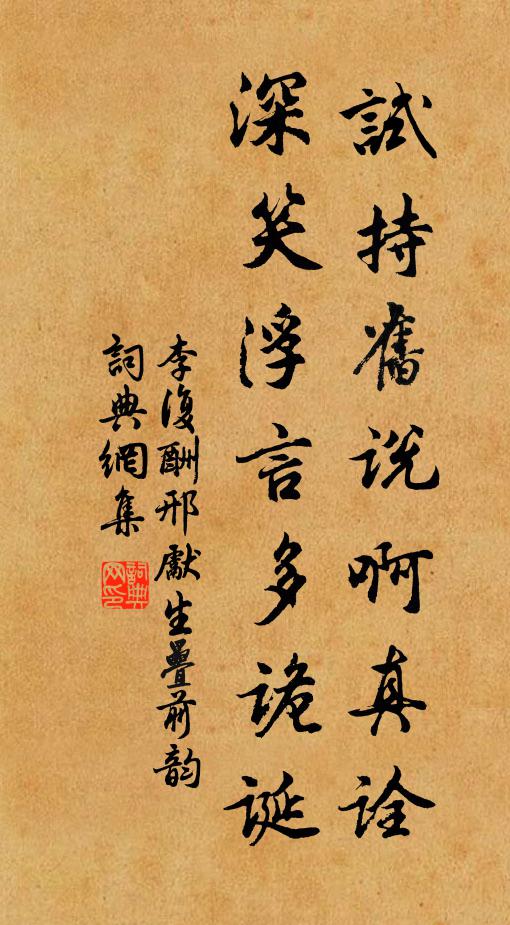 試持舊說啊真詮
深笑浮言多詭誕
李復酬邢獻生疊前韵
詞典網集
詞典網印